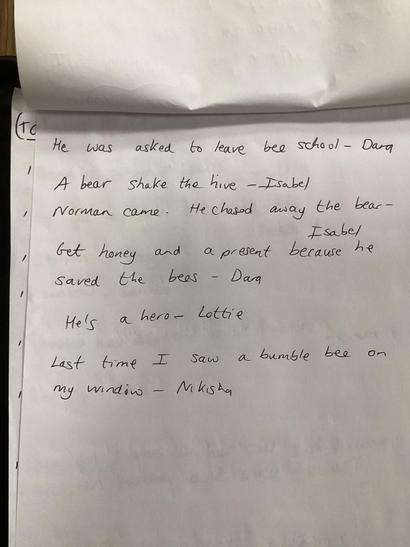 (To
He was asked to leave bee school - Dara
A bear shake the hive - Isabel
Norman came. He chased away the bear -
Isabel
Get honey and a present because he
saved the bees - Dara
He's a hero - Lottie
Last time I saw a bumble bee on
my window - Nikisha